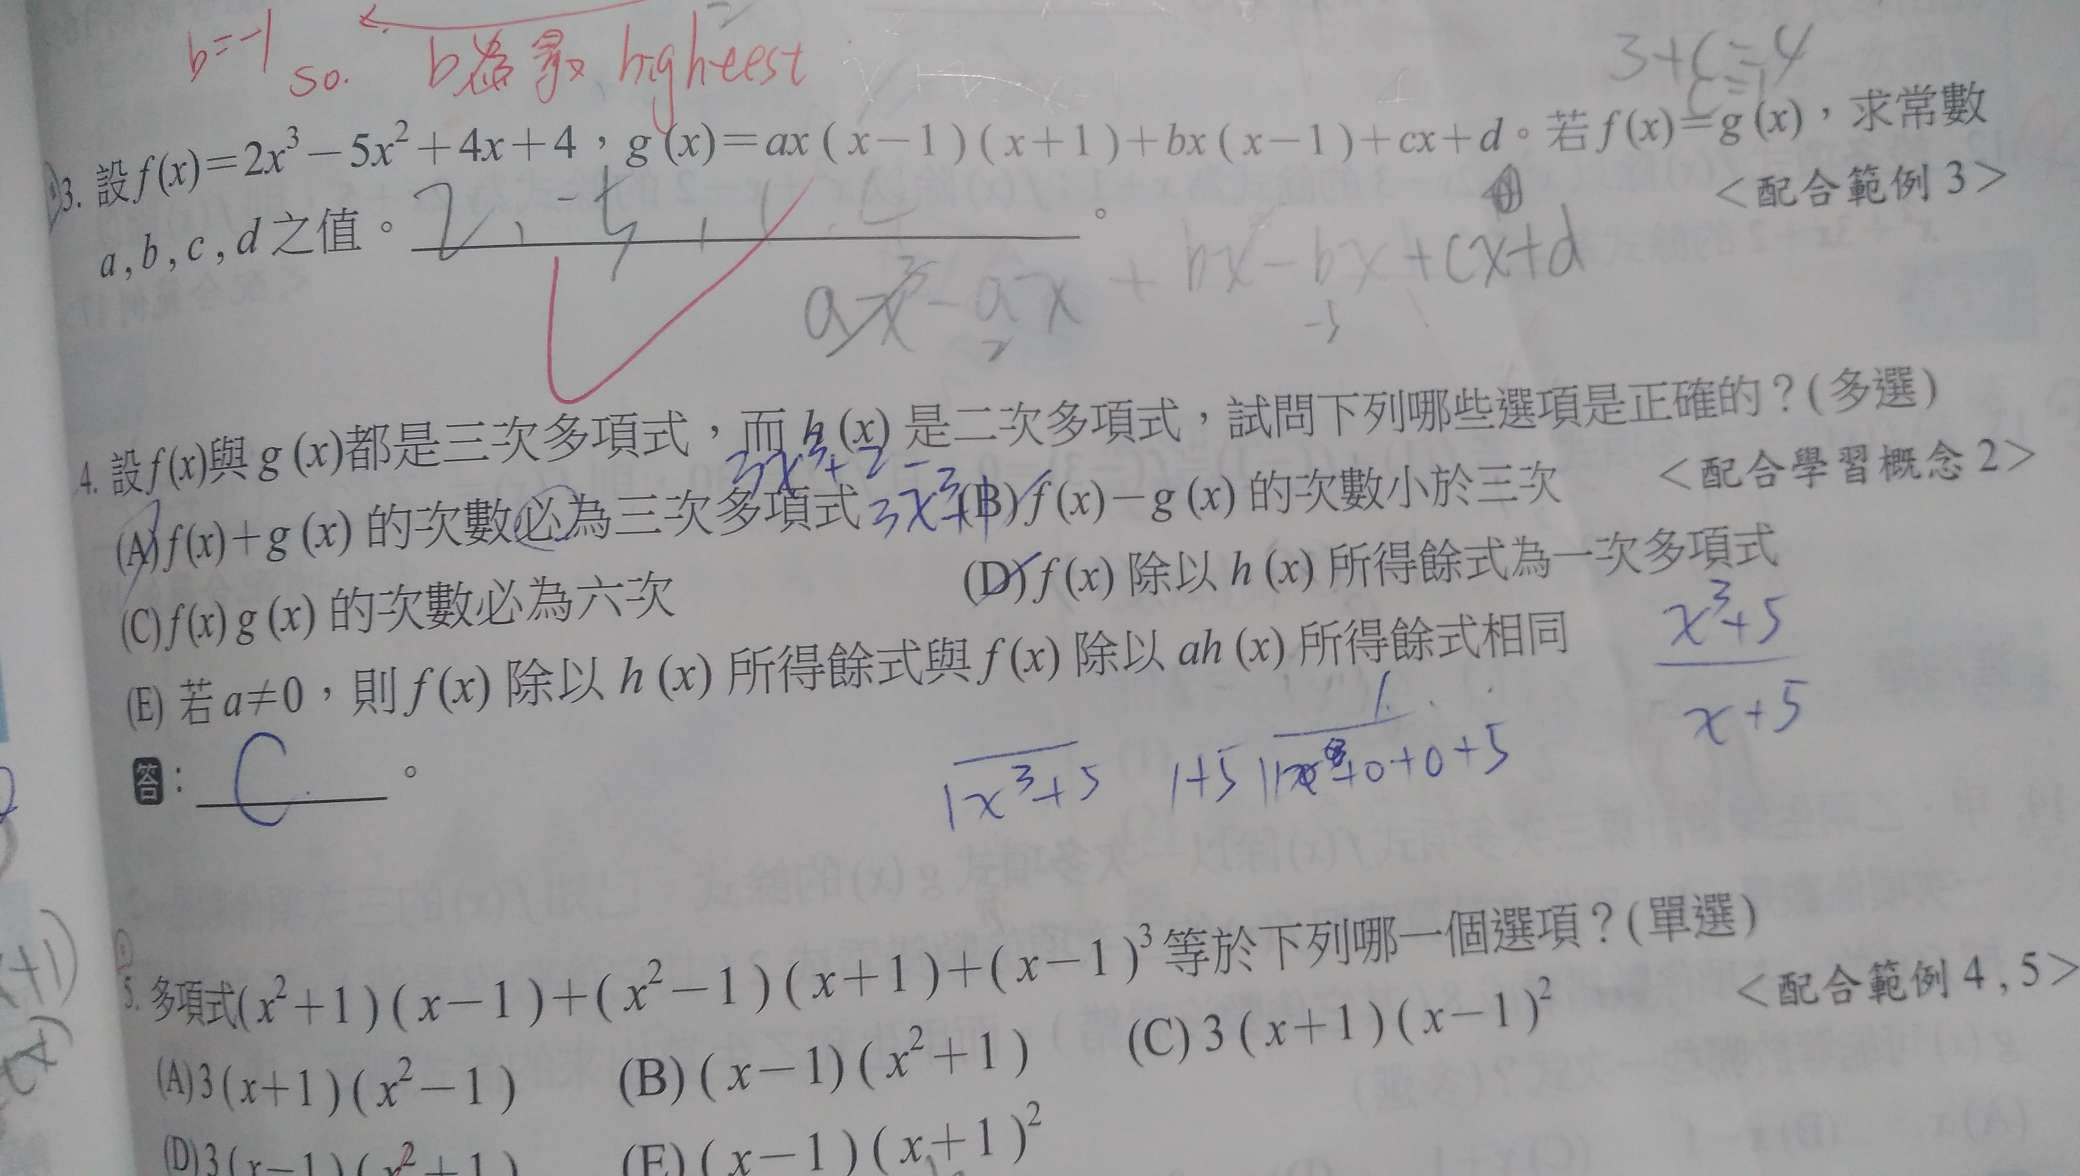 b=-1
so. b為最 highest
3+C=4
C=1
3. 設f(x)=2x³-5x²+4x+4,g(x)=ax(x-1)(x+1)+bx(x-1)+cx+d。若f(x)=g(x),求常數
<配合範例 3>
a,b,c,d之值。2、-5,1、4。
ax³-ax+bx²-bx+cx+d
4. 設f(x)與g(x)都是三次多項式,而h(x)是二次多項式,試問下列哪些選項是正確的?(多選)
3x³+2
<配合學習概念 2>
(A)f(x)+g(x)的次數必為三次多項式 3x³+1 (B)f(x)-g(x)的次數小於三次
(C)f(x)g(x)的次數必為六次 (D)f(x)除以h(x)所得餘式為一次多項式
(E)若a≠0,則f(x)除以h(x)所得餘式與f(x)除以ah(x)所得餘式相同
x³+5
x+5
答:C。
x³+5 1+5 +0+0+5
5. 多項式(x²+1)(x-1)+(x²-1)(x+1)+(x-1)³等於下列哪一個選項?(單選)
<配合範例 4,5>
(A)3(x+1)(x²-1) (B)(x-1)(x²+1) (C)3(x+1)(x-1)²
(D)3(x-1)(x²+1) (E)(x-1)(x+1)²